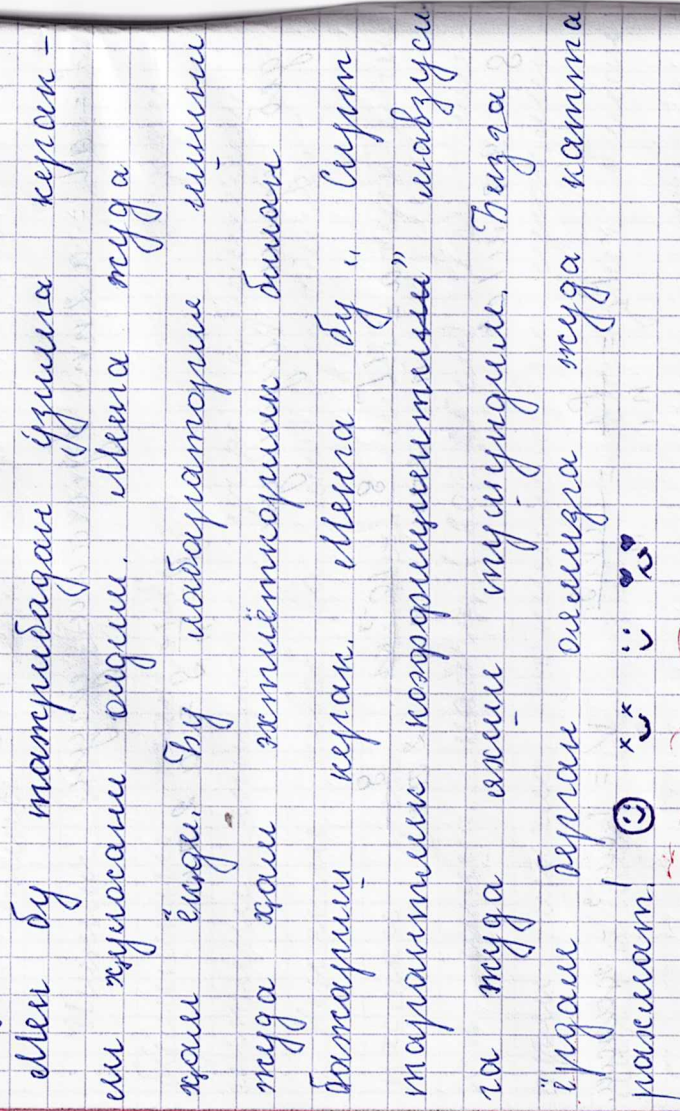 Мен бу тажрибадан ўзимга керак-
ли хулосани олдим. Менга жуда
ҳам ёқди. Бу лабаратория ишини
жуда ҳам эҳтиёткорлик билан
бажариш керак. Менга бу "Сирт
таранглик коэффициентини" мавзуси
га жуда яхши тушундим. Бизга
ёрдам берган оламизга жуда катта
рахмат!